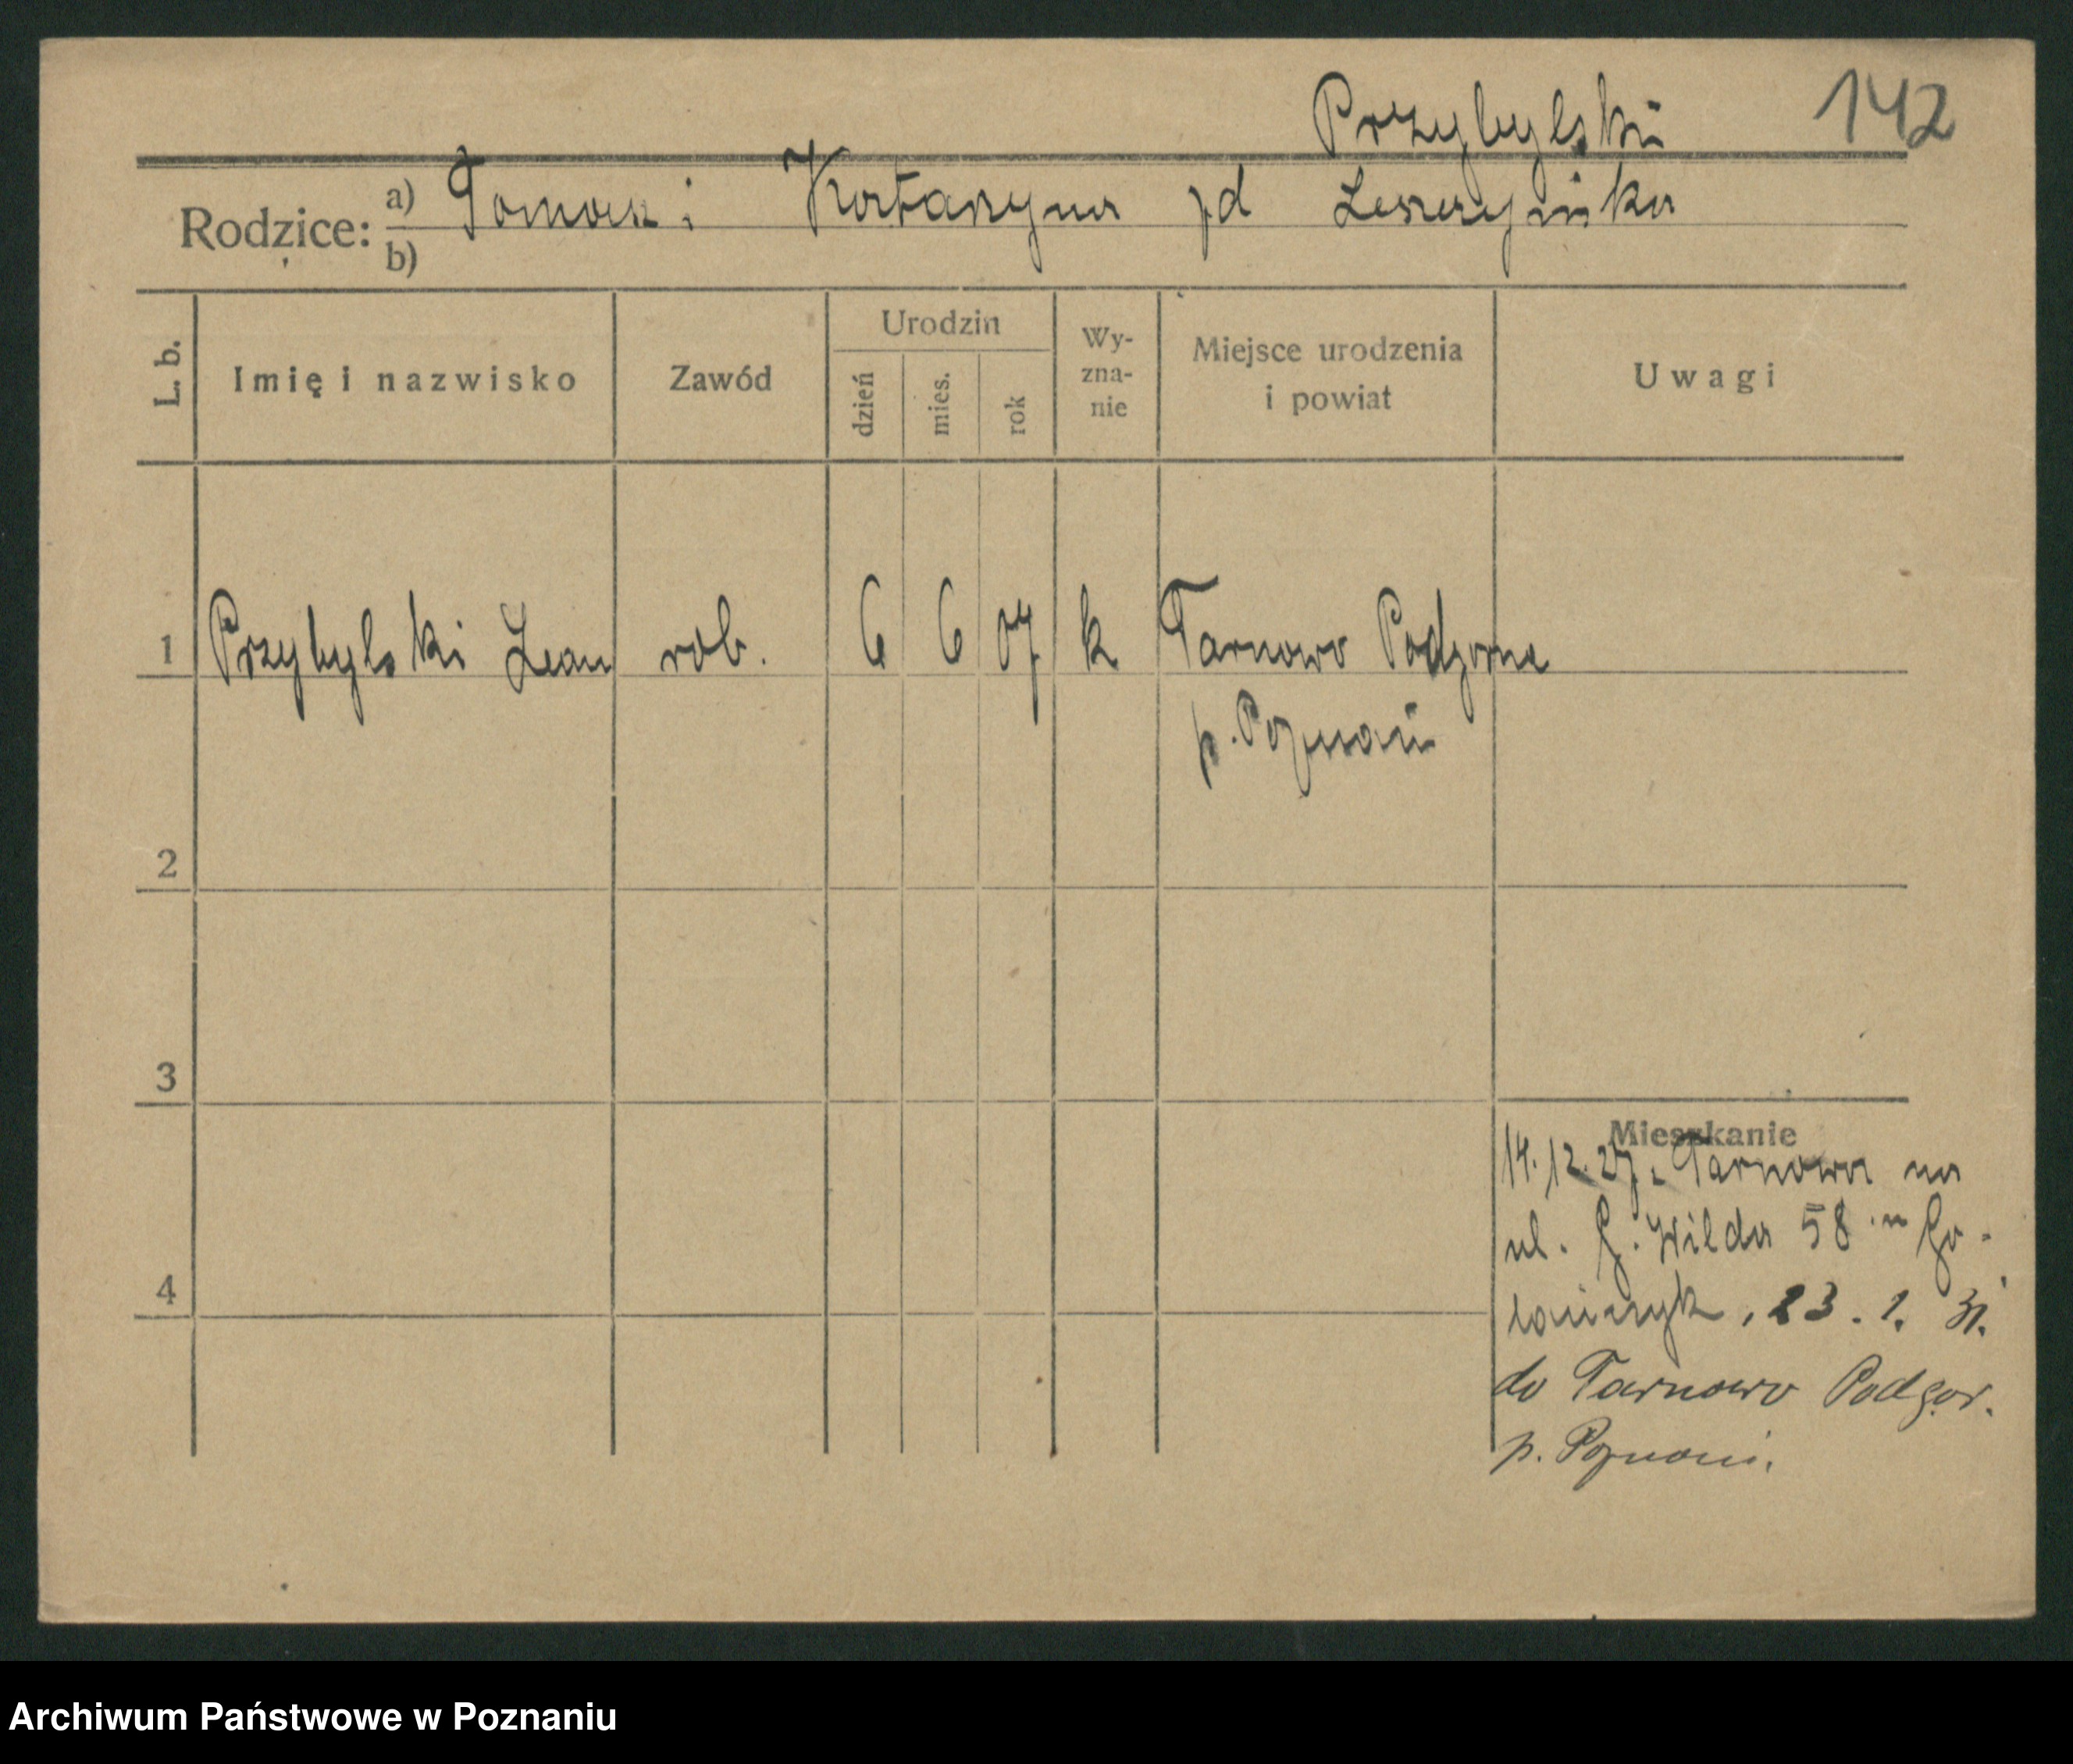 Przybylski 142
Rodzice: a) Tomasz i Katarzyna zd Leszczyńska
b)
L. b. Imię i nazwisko Zawód Urodzin dzień mies. rok Wy-zna-nie Miejsce urodzenia i powiat Uwagi
1 Przybylski Leon rob. 6 6 07 k Tarnowo Podgorne
p. Poznań
2
3
Mieszkanie
14.12.27. z Tarnowa na
ul. G. Wilda 58
23. 1. 31.
4
do Tarnowo Podgor.
p. Poznań.
Archiwum Państwowe w Poznaniu